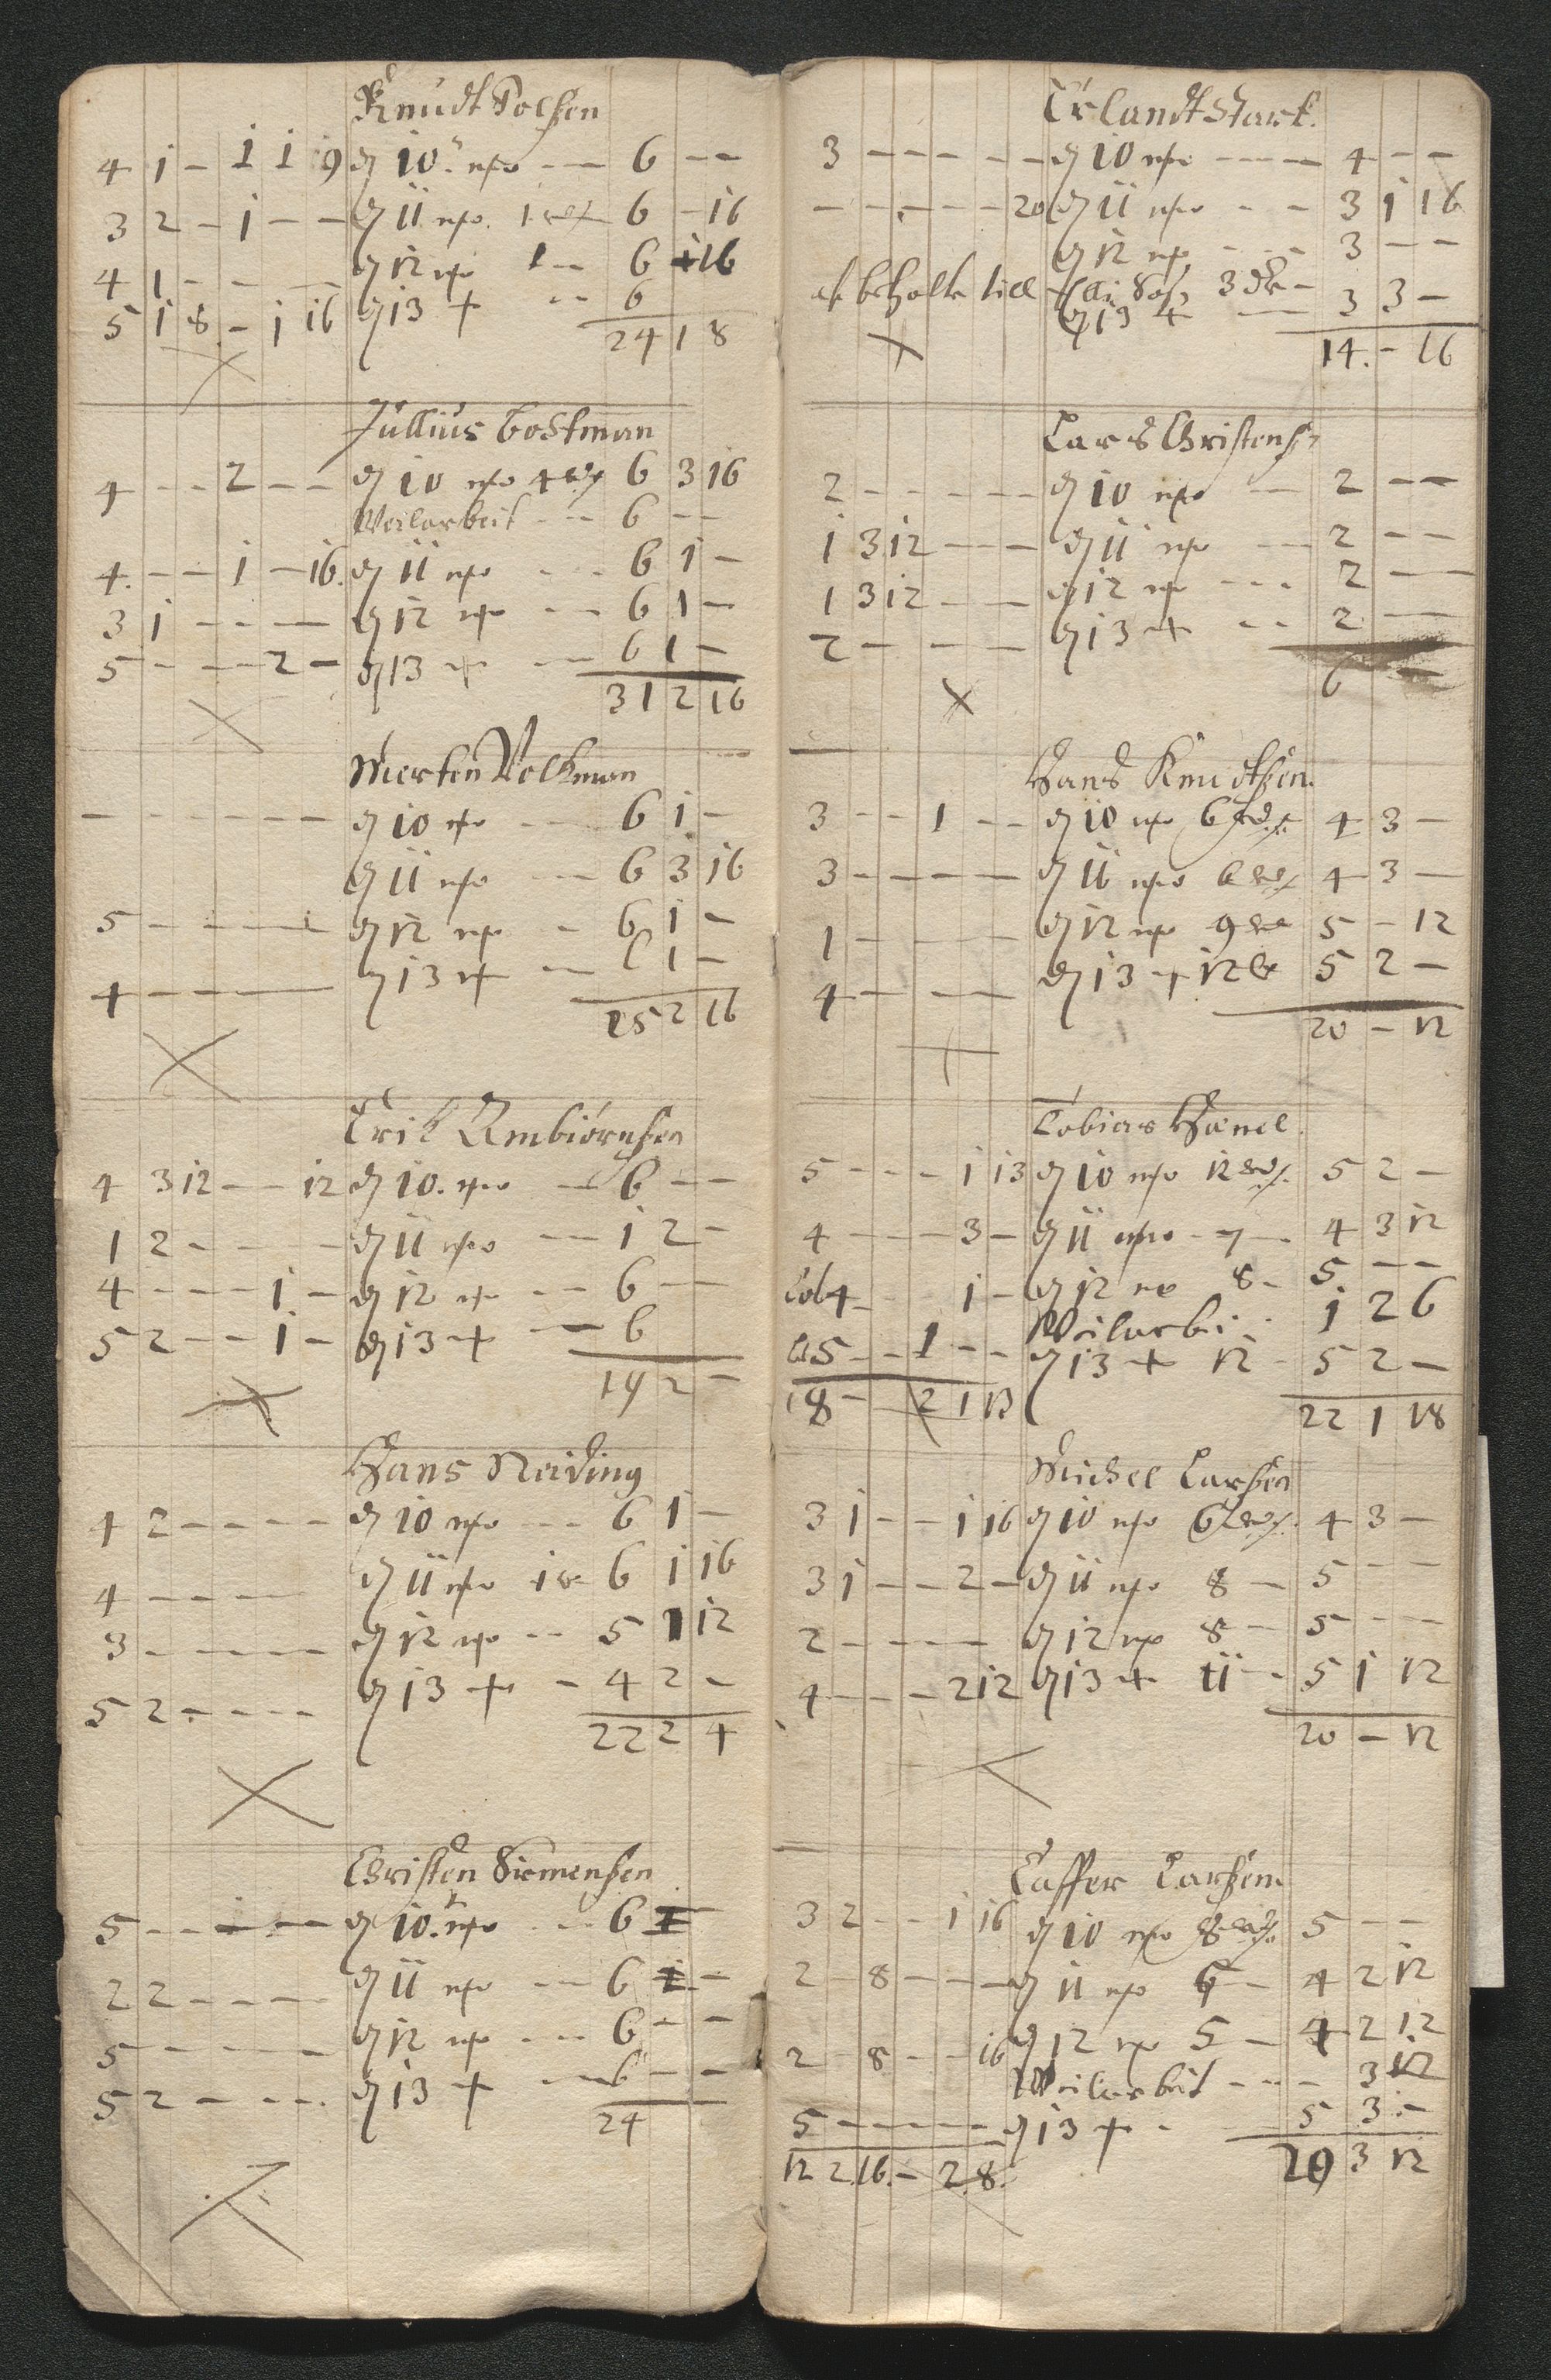 Knudt Polsen
4 1 - 1 1 19 d 10. npo --- 6 --
3 2 - 1 - - d 11 npo 1 6 - 16
4 1 - - - d 12 npo 1 -- 6 16
5 1 8 - 1 16 d 13 -- 6
24 1 8
Jullius Tostman
4 - - 2 - - d 10 npo 4 6 3 16
Weilarbeit -- 6 --
4. - - 1 - 16. d 11 npo --- 6 1 -
3 1 - - - - d 12 npo -- 6 1 -
5 - - - 2 - d 13 -- 6 1 -
31 2 16
Merten Volckman
- - - - - - d 10 npo --- 6 1 -
d 11 npo --- 6 3 16
5 - - - - d 12 npo - 6 1 -
4 - - - d 13 -- 6 1 -
25 2 16
Erik Ambiörnsen
4 3 12 - - 12 d 10. npo -- 6 --
1 2 - - - d 11 npo -- 1 2 -
4 - - - 1 - d 12 npo -- 6 --
5 2 - - 1 - d 13 -- 6
19 2 -
Hans Neiding
4 2 - - - - d 10 npo --- 6 1 -
4 - - - - d 11 npo 1 6 1 16
3 - - - - d 12 npo -- 5 1 12
5 2 - - - - d 13 - 4 2 -
22 2 4
Christen Siemensen
5 - - - - - d 10. npo --- 6
2 2 - - - - d 11 npo --- 6 -
5 - - - - - d 12 npo --- 6 --
5 2 - - - - d 13 -- 6 --
24
Erlandt Stark.
3 - - - - - d 10 npo --- 4 --
- - - - - 20 d 11 npo -- 3 1 16
d 12 npo --- 3 --
till 3
d 13 -- 3 3 -
14. - 16
Lars Christens
2 - - - - - d 10 npo -- 2 --
1 3 12 - - - d 11 npo -- 2 --
1 3 12 - - d 12 npo --- 2 --
2 - - - d 13 -- 2 --
6
Hans Knudtsen.
3 - - 1 - - d 10 npo 6 4 3 -
3 - - - - - d 11 npo 6 4 3 -
1 - - - - d 12 npo 9 5 - 12
4 - - - d 13 12 5 2 -
20 - 12
Tobias Hanel.
5 - - - 1 13 d 10 npo 12 5 2 -
4 - - - 3 - d 11 npo - 7 - 4 3 12
4 - 1 - d 12 npo 8 - 5 --
Weilarbei - 1 2 6
5 - - 1 - - d 13 12 - 5 2 -
18 - 2 1 13
22 1 18
Michel Larsen
3 1 - - 1 16 d 10 npo 6 4 3 -
3 1 - - 2 - d 11 npo 8 - 5 --
2 - - - - d 12 npo 8 - 5 --
4 - - - 2 12 d 13 11 - 5 1 12
20 - 12
Caffer Larsen.
3 2 - - 1 16 d 10 npo 8 5 --
2 - 8 - - - d 11 npo 6 - 4 2 12
2 - 8 - - 16 d 12 npo 5 - 4 2 12
Weilarbeit --- 3 12
5 - - - - - d 13 - 5 3 -
12 2 16. - 2 8.
20 3 12